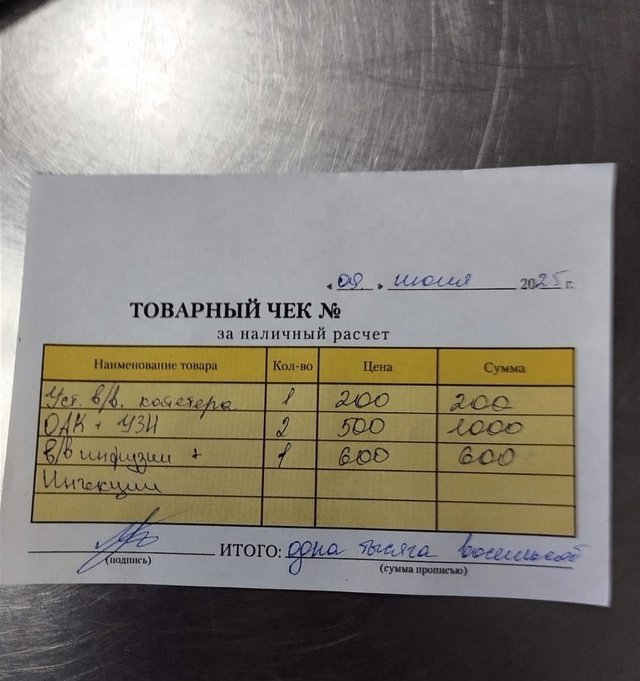 « 09 » июня 2025 г.
ТОВАРНЫЙ ЧЕК №
за наличный расчет
Наименование товара Кол-во Цена Сумма
Уст. в/в. катетера 1 200 200
ОАК + УЗИ 2 500 1000
в/в инфузии + 1 600 600
Инъекции
ИТОГО: одна тысяча восемьсот
(подпись) (сумма прописью)